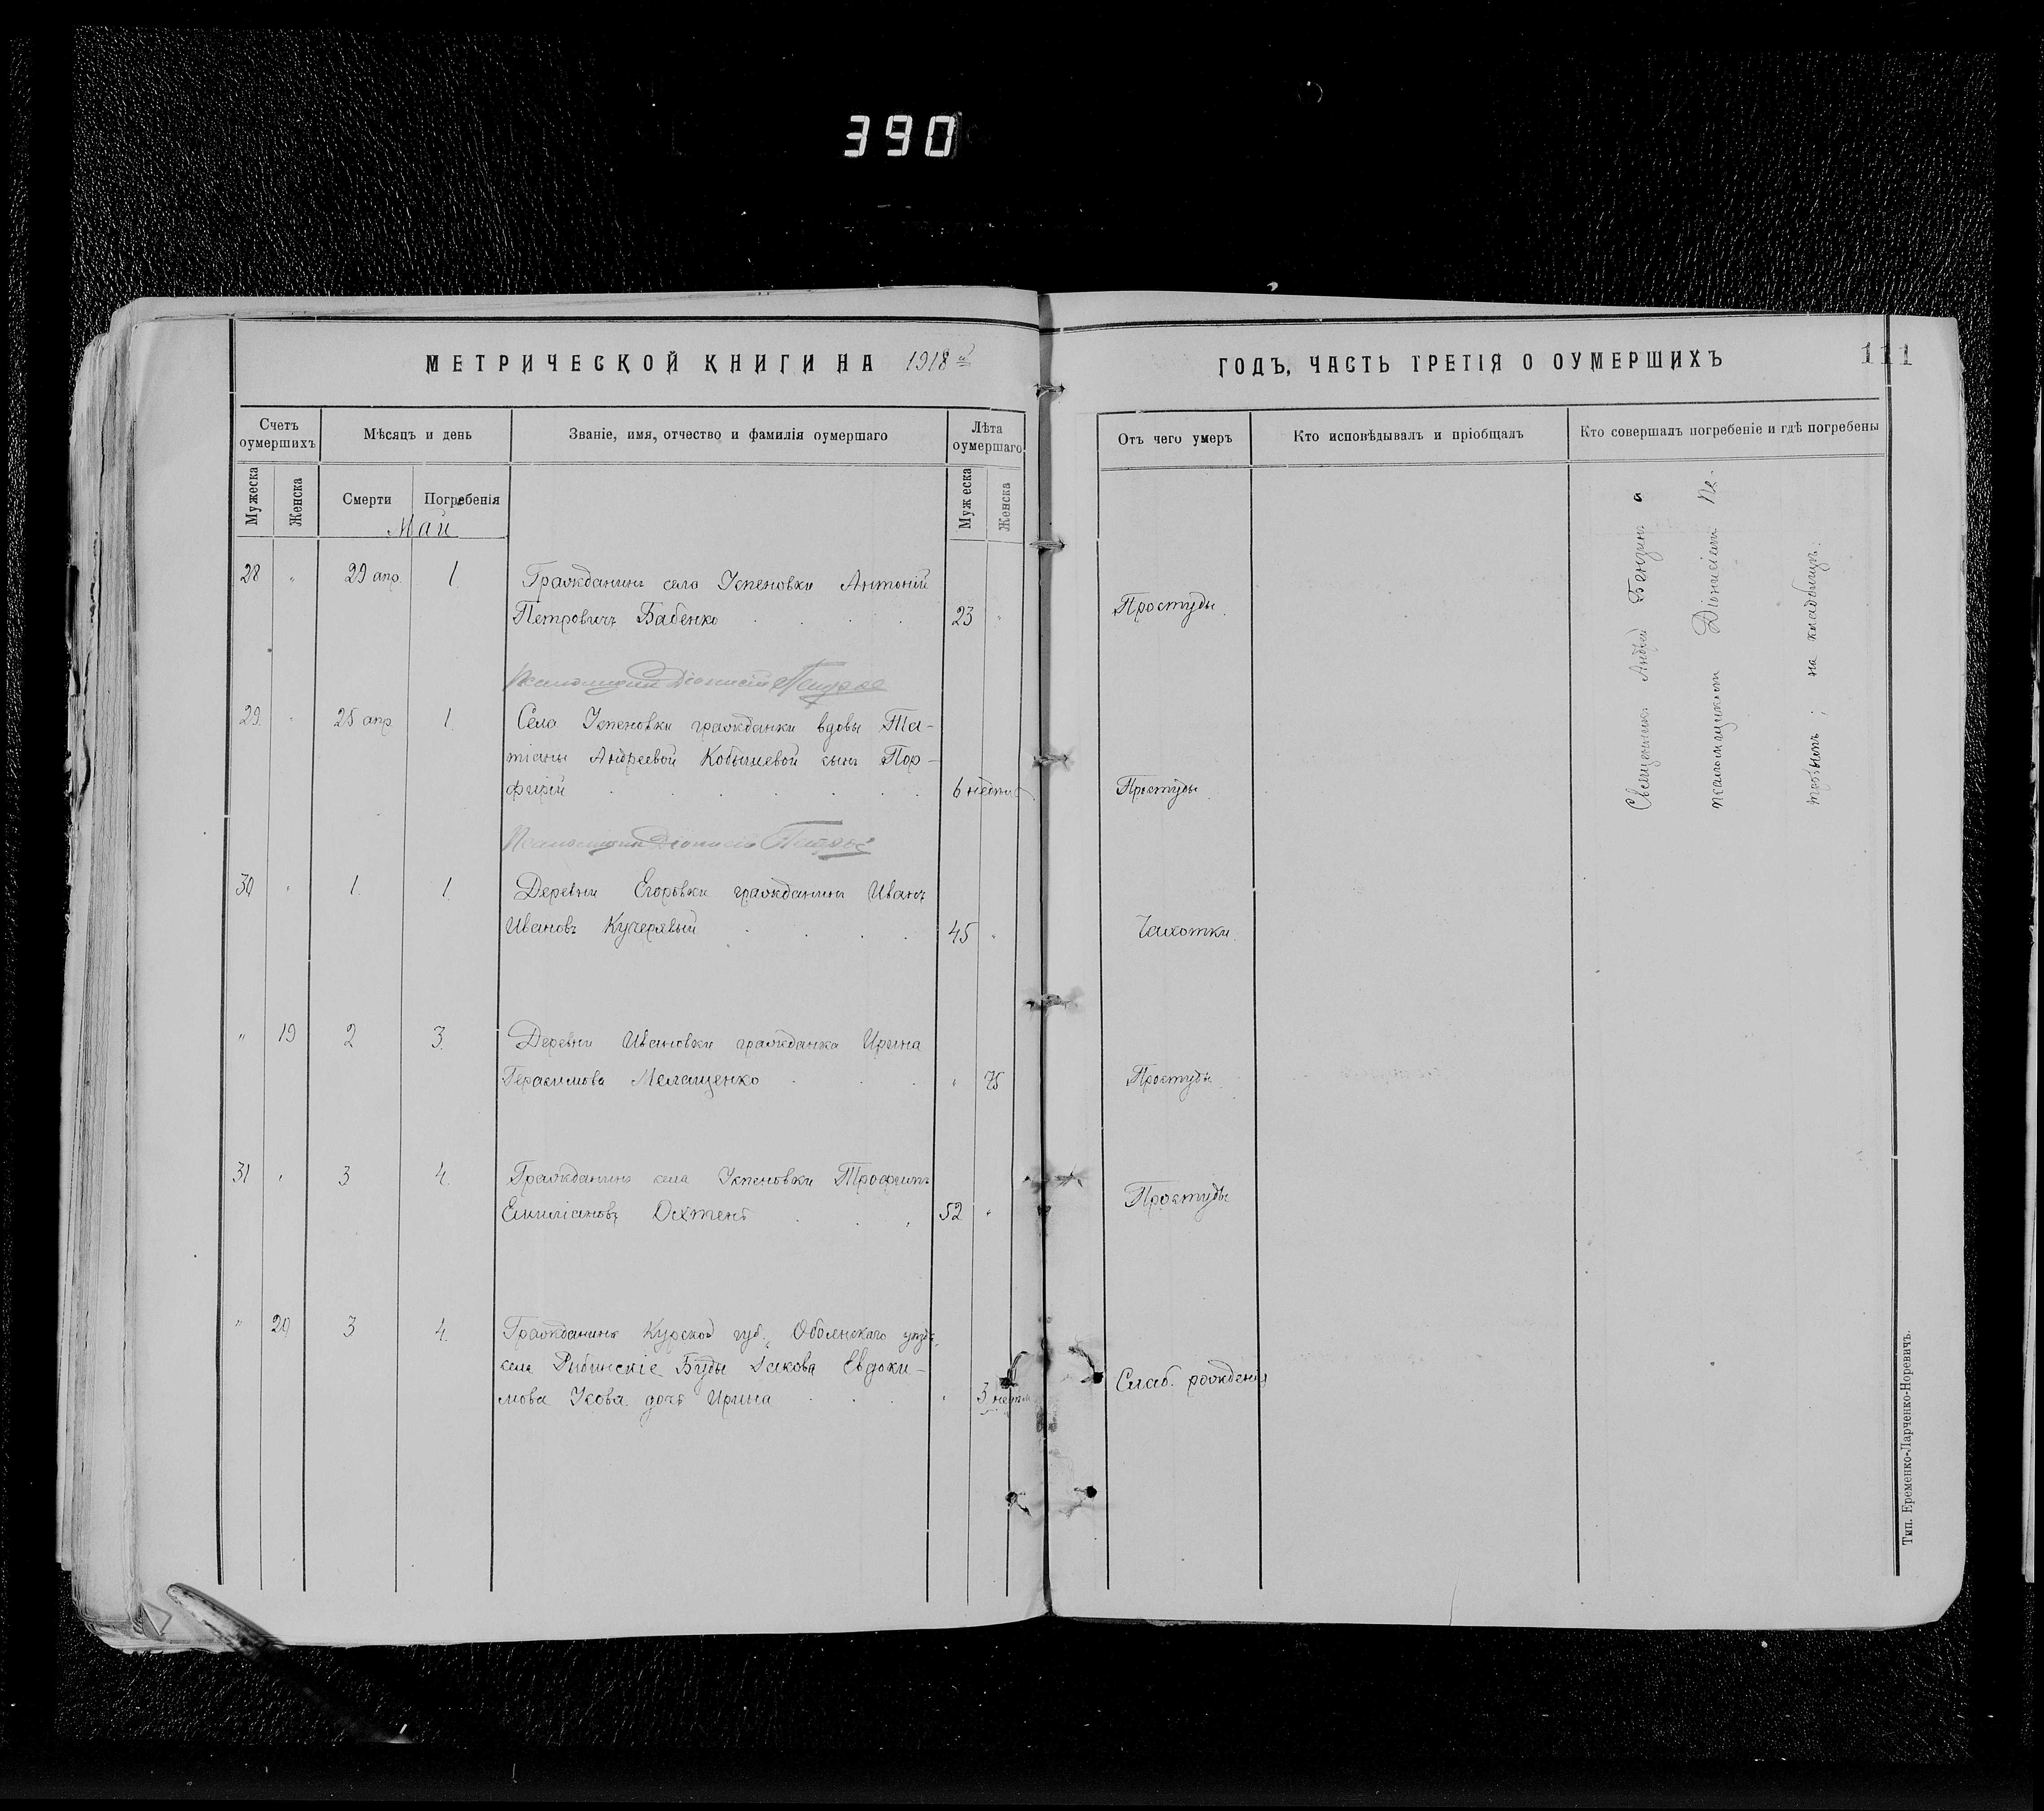 390
МЕТРИЧЕСКОЙ КНИГИ НА 1918 й
ГОДЪ, ЧАСТЬ ТРЕТІЯ О ОУМЕРШИХЪ
111
Счетъ оумершихъ
Мѣсяцъ и день
Званіе, имя, отчество и фамилія оумершаго
Лѣта оумершаго
Отъ чего умеръ
Кто исповѣдывалъ и пріобщалъ
Кто совершалъ погребеніе и гдѣ погребены
Мужеска
Женска
Смерти
Погребенія
Мужеска
Женска
Май
28 " 29 апр. 1. Гражданинъ села Успеновки Антоній
Петровичъ Бабенко 23 " Простуды.
Псаломщикъ Діонисій
29. " 25 апр 1. Села Успеновки гражданки вдовы Та-
тіаны Андреевой Кобылевой сынъ Пор-
фирій 6 Простуды.
Псаломщикъ Діонисій
30 " 1. 1. Деревни Егоровки гражданинъ Иванъ
Ивановъ Кучерявый 45 " Чахотки.
" 19 2 3. Деревни Ивановки гражданка Ирина
Герасимова Мелащенко " 75 Простуды.
31 " 3 4. Гражданинъ села Успеновки Трофимъ
Емиліановъ 52 " Простуды
" 20 3 4. Гражданина Курской губ. Обоянскаго уѣзда
села Рыбинскіе Буды Іакова Евдоки-
мова Усова дочь Ирина " 3 Слаб. рожденія
Священникъ Андрей а
псаломщикомъ Діонисіемъ Пе-
на кладбищѣ.
Тип. Еременко-Ларченко-Норевичъ.